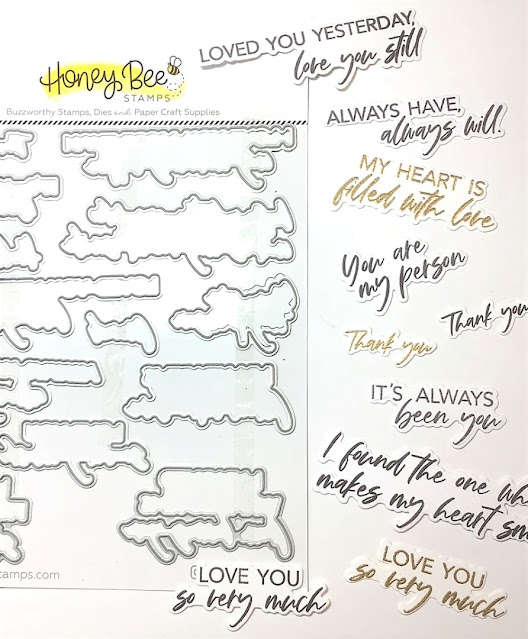 Honey Bee
STAMPS
Buzzworthy Stamps, Dies and Paper Craft Supplies
LOVED YOU YESTERDAY,
love you still
ALWAYS HAVE,
always will.
MY HEART IS
filled with love
You are
my person
Thank you
Thank you
IT'S ALWAYS
been you
I found the one
makes my heart
LOVE YOU
so very much
LOVE YOU
so very much
tamps.com